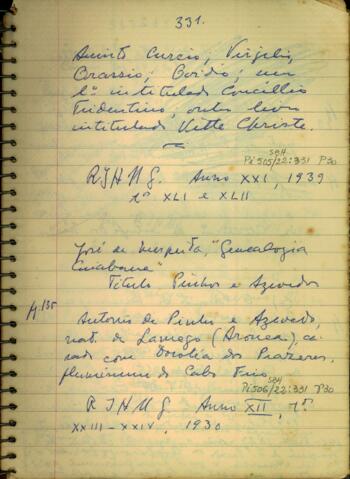 331.
Quinto Curcio, Virgilio,
Orassio; Ovidio; um
lº intitulado Concillio
Tridentino, outro livro
intitulado Vitte Christe.
SBH
Pi 505/22:331 P30
RIHMG. Anno XXI, 1939
nos XLI e XLII
José de Mesquita, "Genealogia
Cuiabana"
Titulo Pinhos e Azevedos
p. 135
Antonio de Pinho e Azevedo,
nat. de Lamego (Arouca), ca-
sado com Dorotéa dos Prazeres,
fluminense de Cabo Frio
SBH
Pi 506/22:331 P30
RIHMG. Anno XII, nos
XXIII-XXIV, 1930